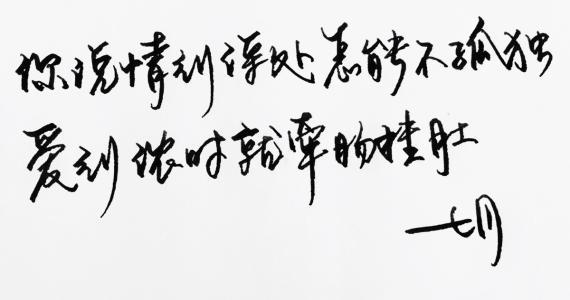 你说情到深处怎能不孤独
爱到浓时就牵肠挂肚
七月